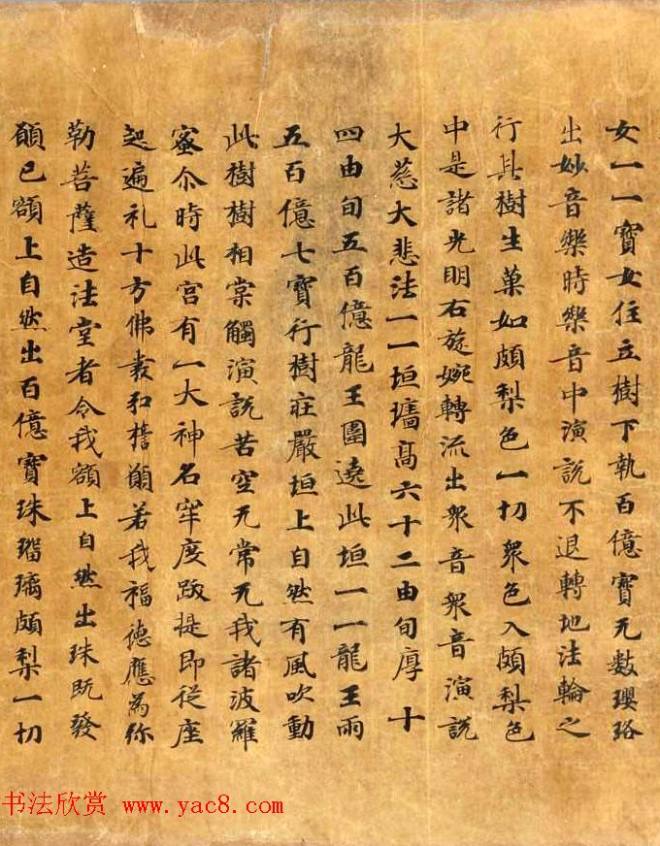 女一一寳女住立樹下執百億寳无數瓔珞
出妙音樂時樂音中演説不退轉地法輪之
行其樹生菓如頗梨色一切衆色入頗梨色
中是諸光明右旋婉轉流出衆音衆音演説
大慈大悲法一一垣墻髙六十二由旬厚十
四由旬五百億龍王圍遶此垣一一龍王雨
五百億七寳行樹莊嚴垣上自然有風吹動
此樹樹相棠觸演説苦空无常无我諸波羅
蜜尒時此宫有一大神名牢度跋提即從座
起遍礼十方佛發弘誓願若我福德應為弥
勒菩薩造法堂者令我額上自然出珠既發
願已額上自然出百億寳珠瑠璃頗梨一切
书法欣赏 www.yac8.com